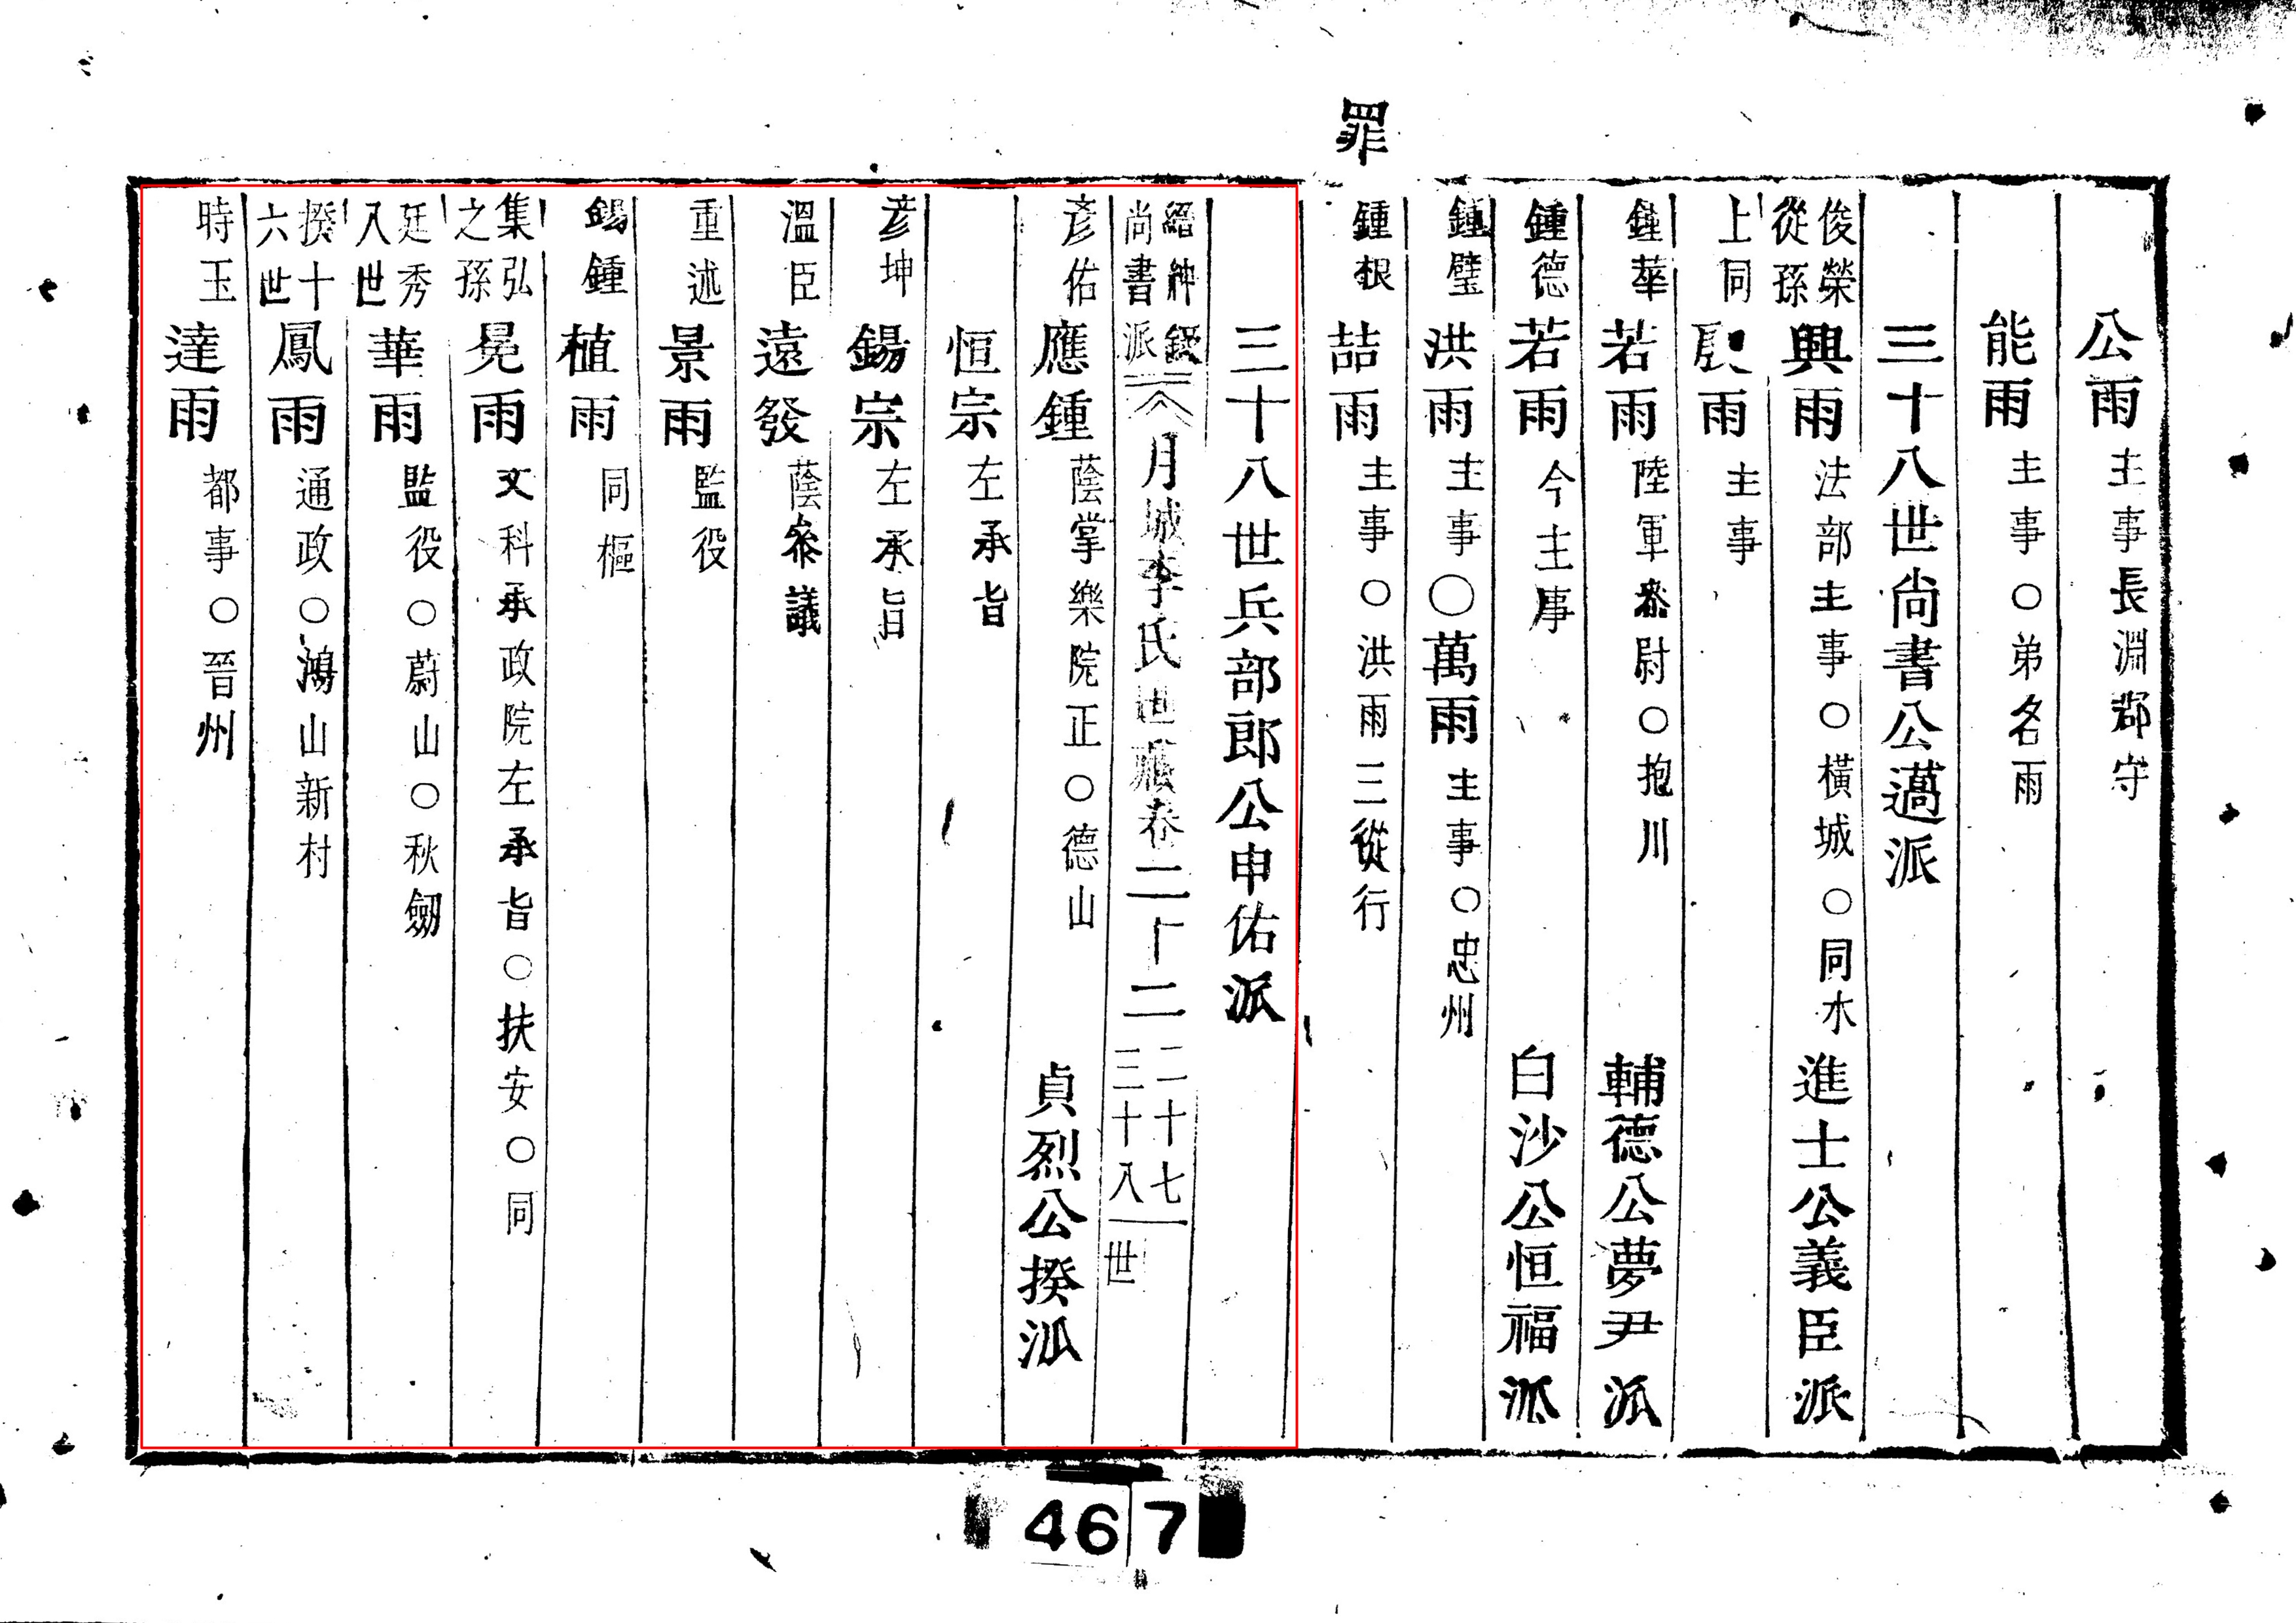 罪
公雨 主事長淵郡守
能雨 主事○弟名雨
三十八世尙書公邁派
俊榮從孫 興雨 法部主事○橫城○同水 進士公義臣派
上同 殷雨 主事
鍾華 若雨 陸軍叅尉○抱川 輔德公夢尹派
鍾德 若雨 今主事 白沙公恒福派
鍾璧 洪雨 主事○萬雨 主事○忠州
鍾根 喆雨 主事○洪雨三從行
三十八世兵部郎公申佑派
縉紳錄尙書派 月城李氏世 卷二十二 二十七 三十八 世
彥佑 應鍾 蔭掌樂院正○德山 貞烈公揆派
恒宗 左承旨
彥坤 錫宗 左承旨
溫臣 遠發 蔭叅議
重述 景雨 監役
錫鍾 植雨 同樞
集弘之孫 晃雨 文科承政院左承旨○扶安○同
廷秀八世 華雨 監役○蔚山○秋劒
揆十六世 鳳雨 通政○鴻山新村
時玉 達雨 都事○晉州
467